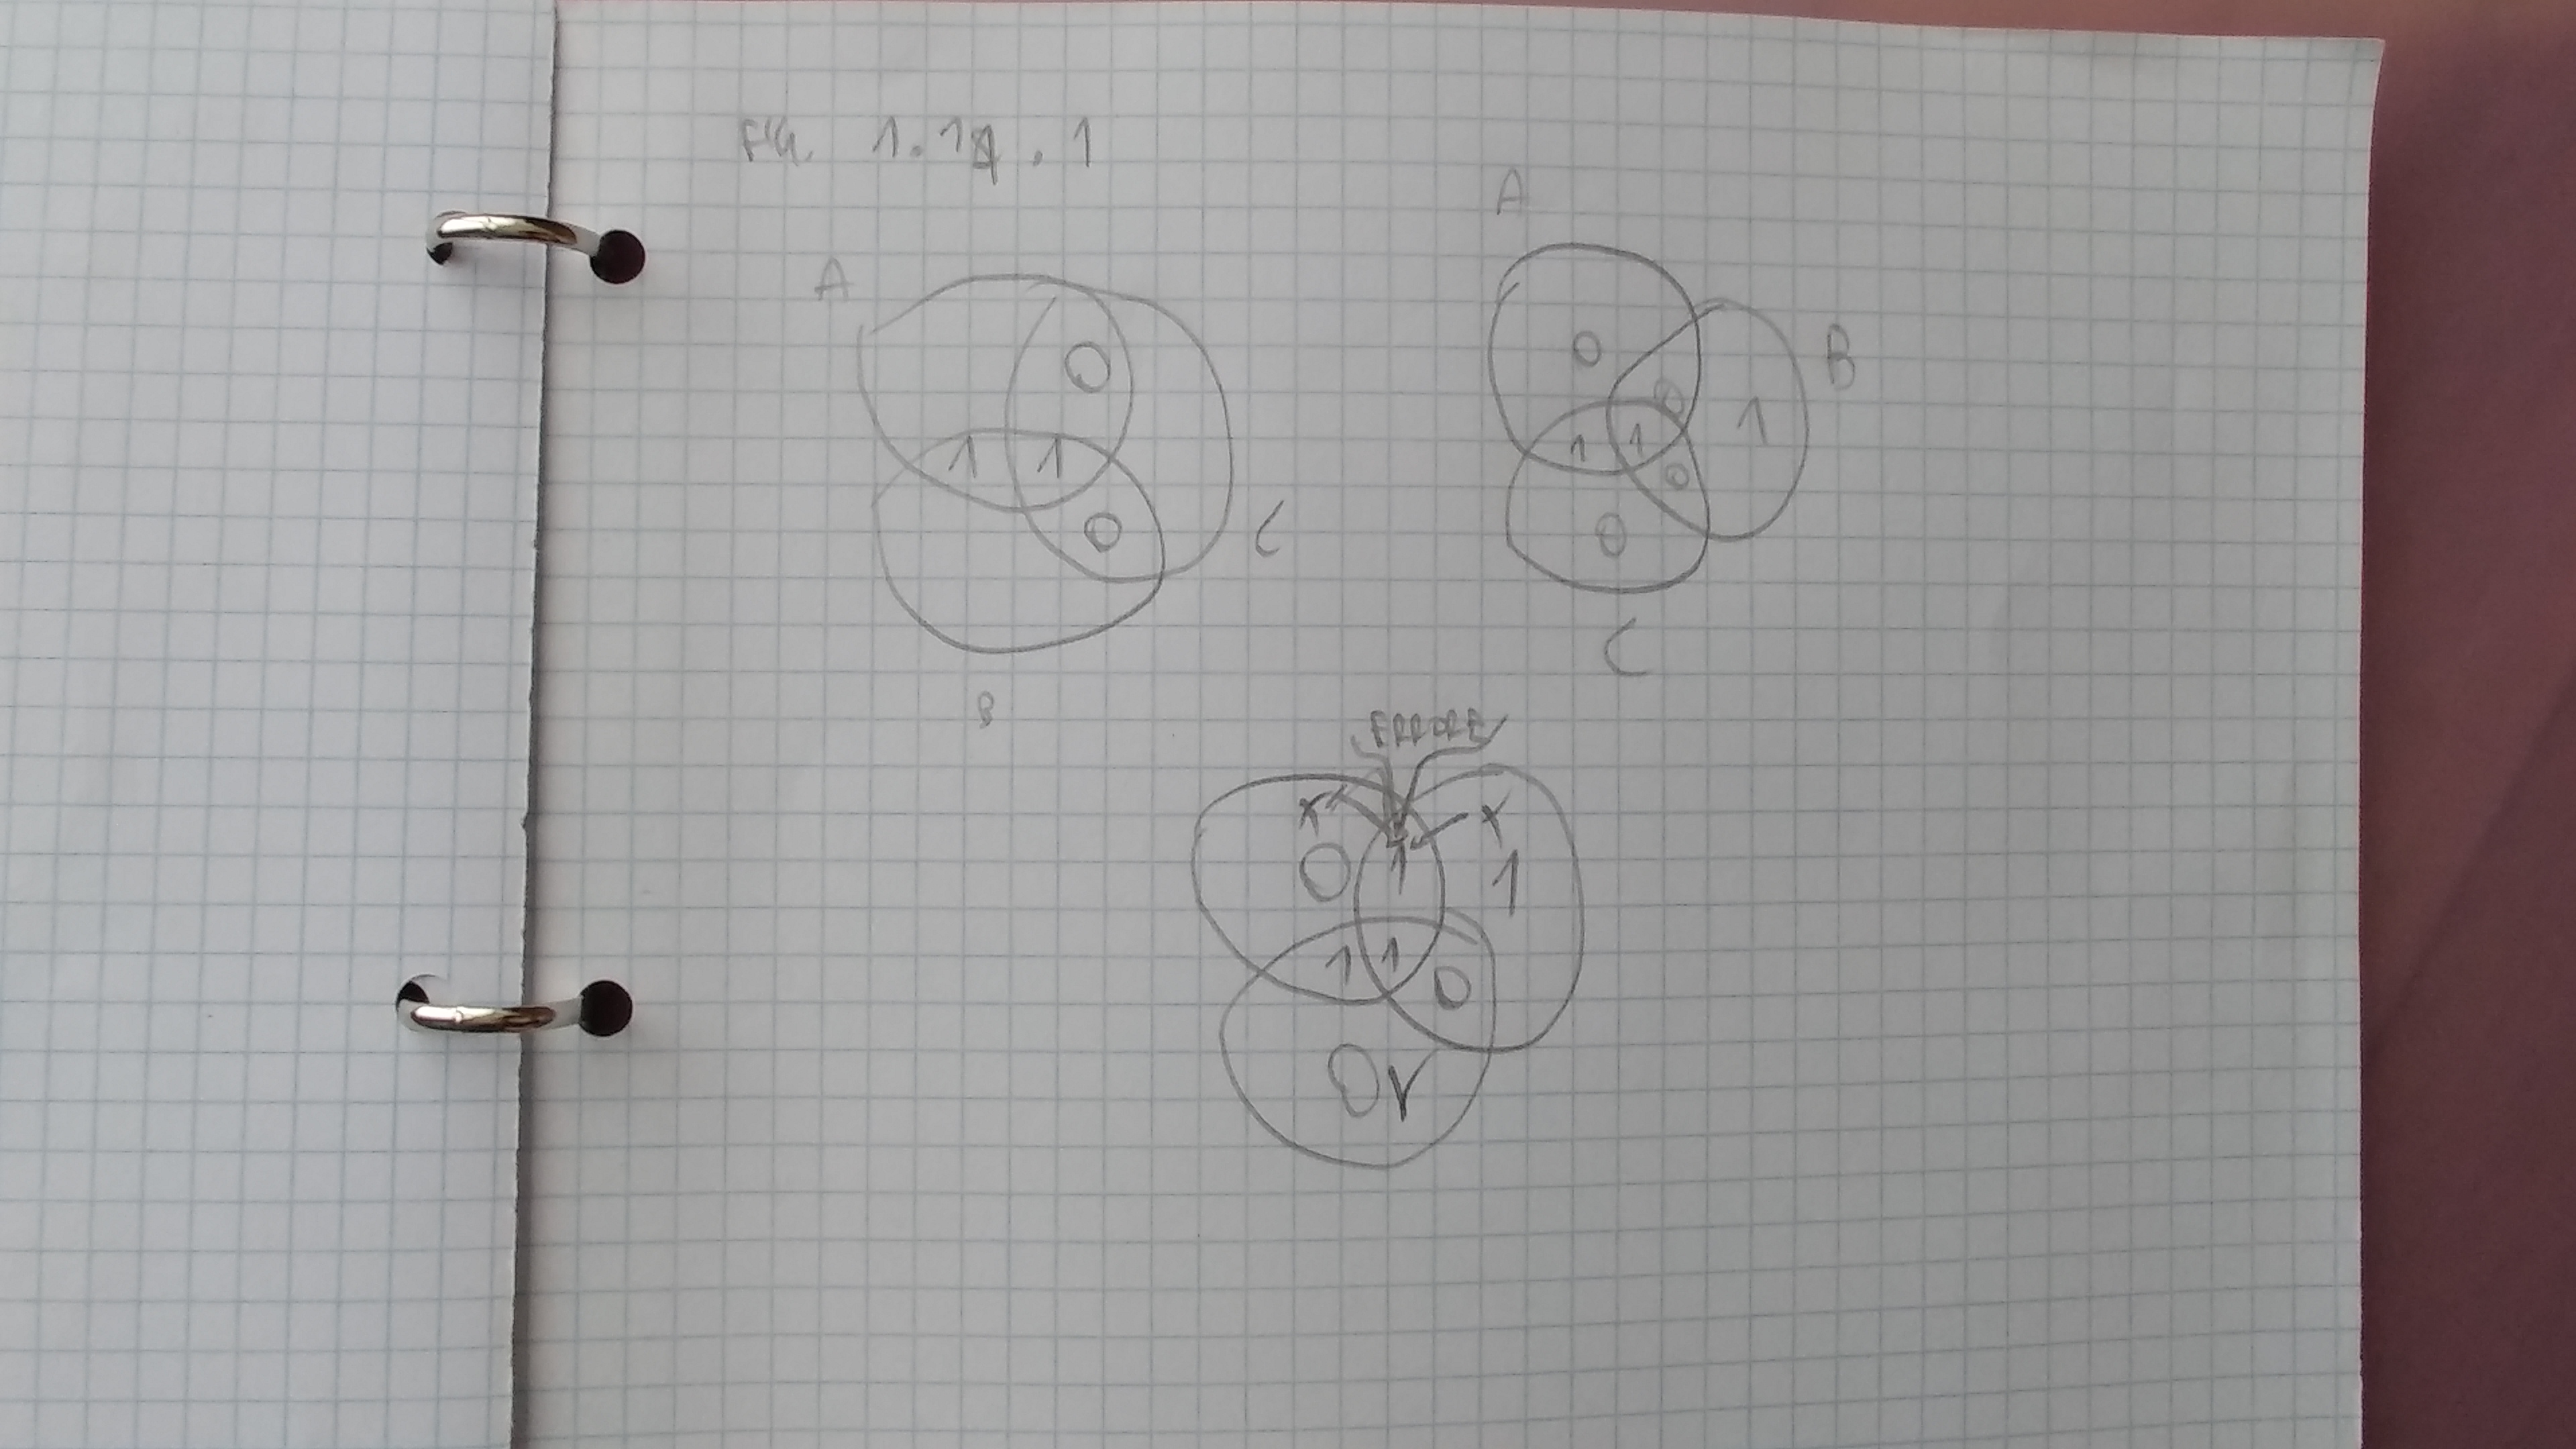 FIG. 1.14.1
A
0
1 1
0
C
B
A
0
B
0
1
1 1
0
0
C
ERRORE
x x
0 1 1
1 1
0
0 √